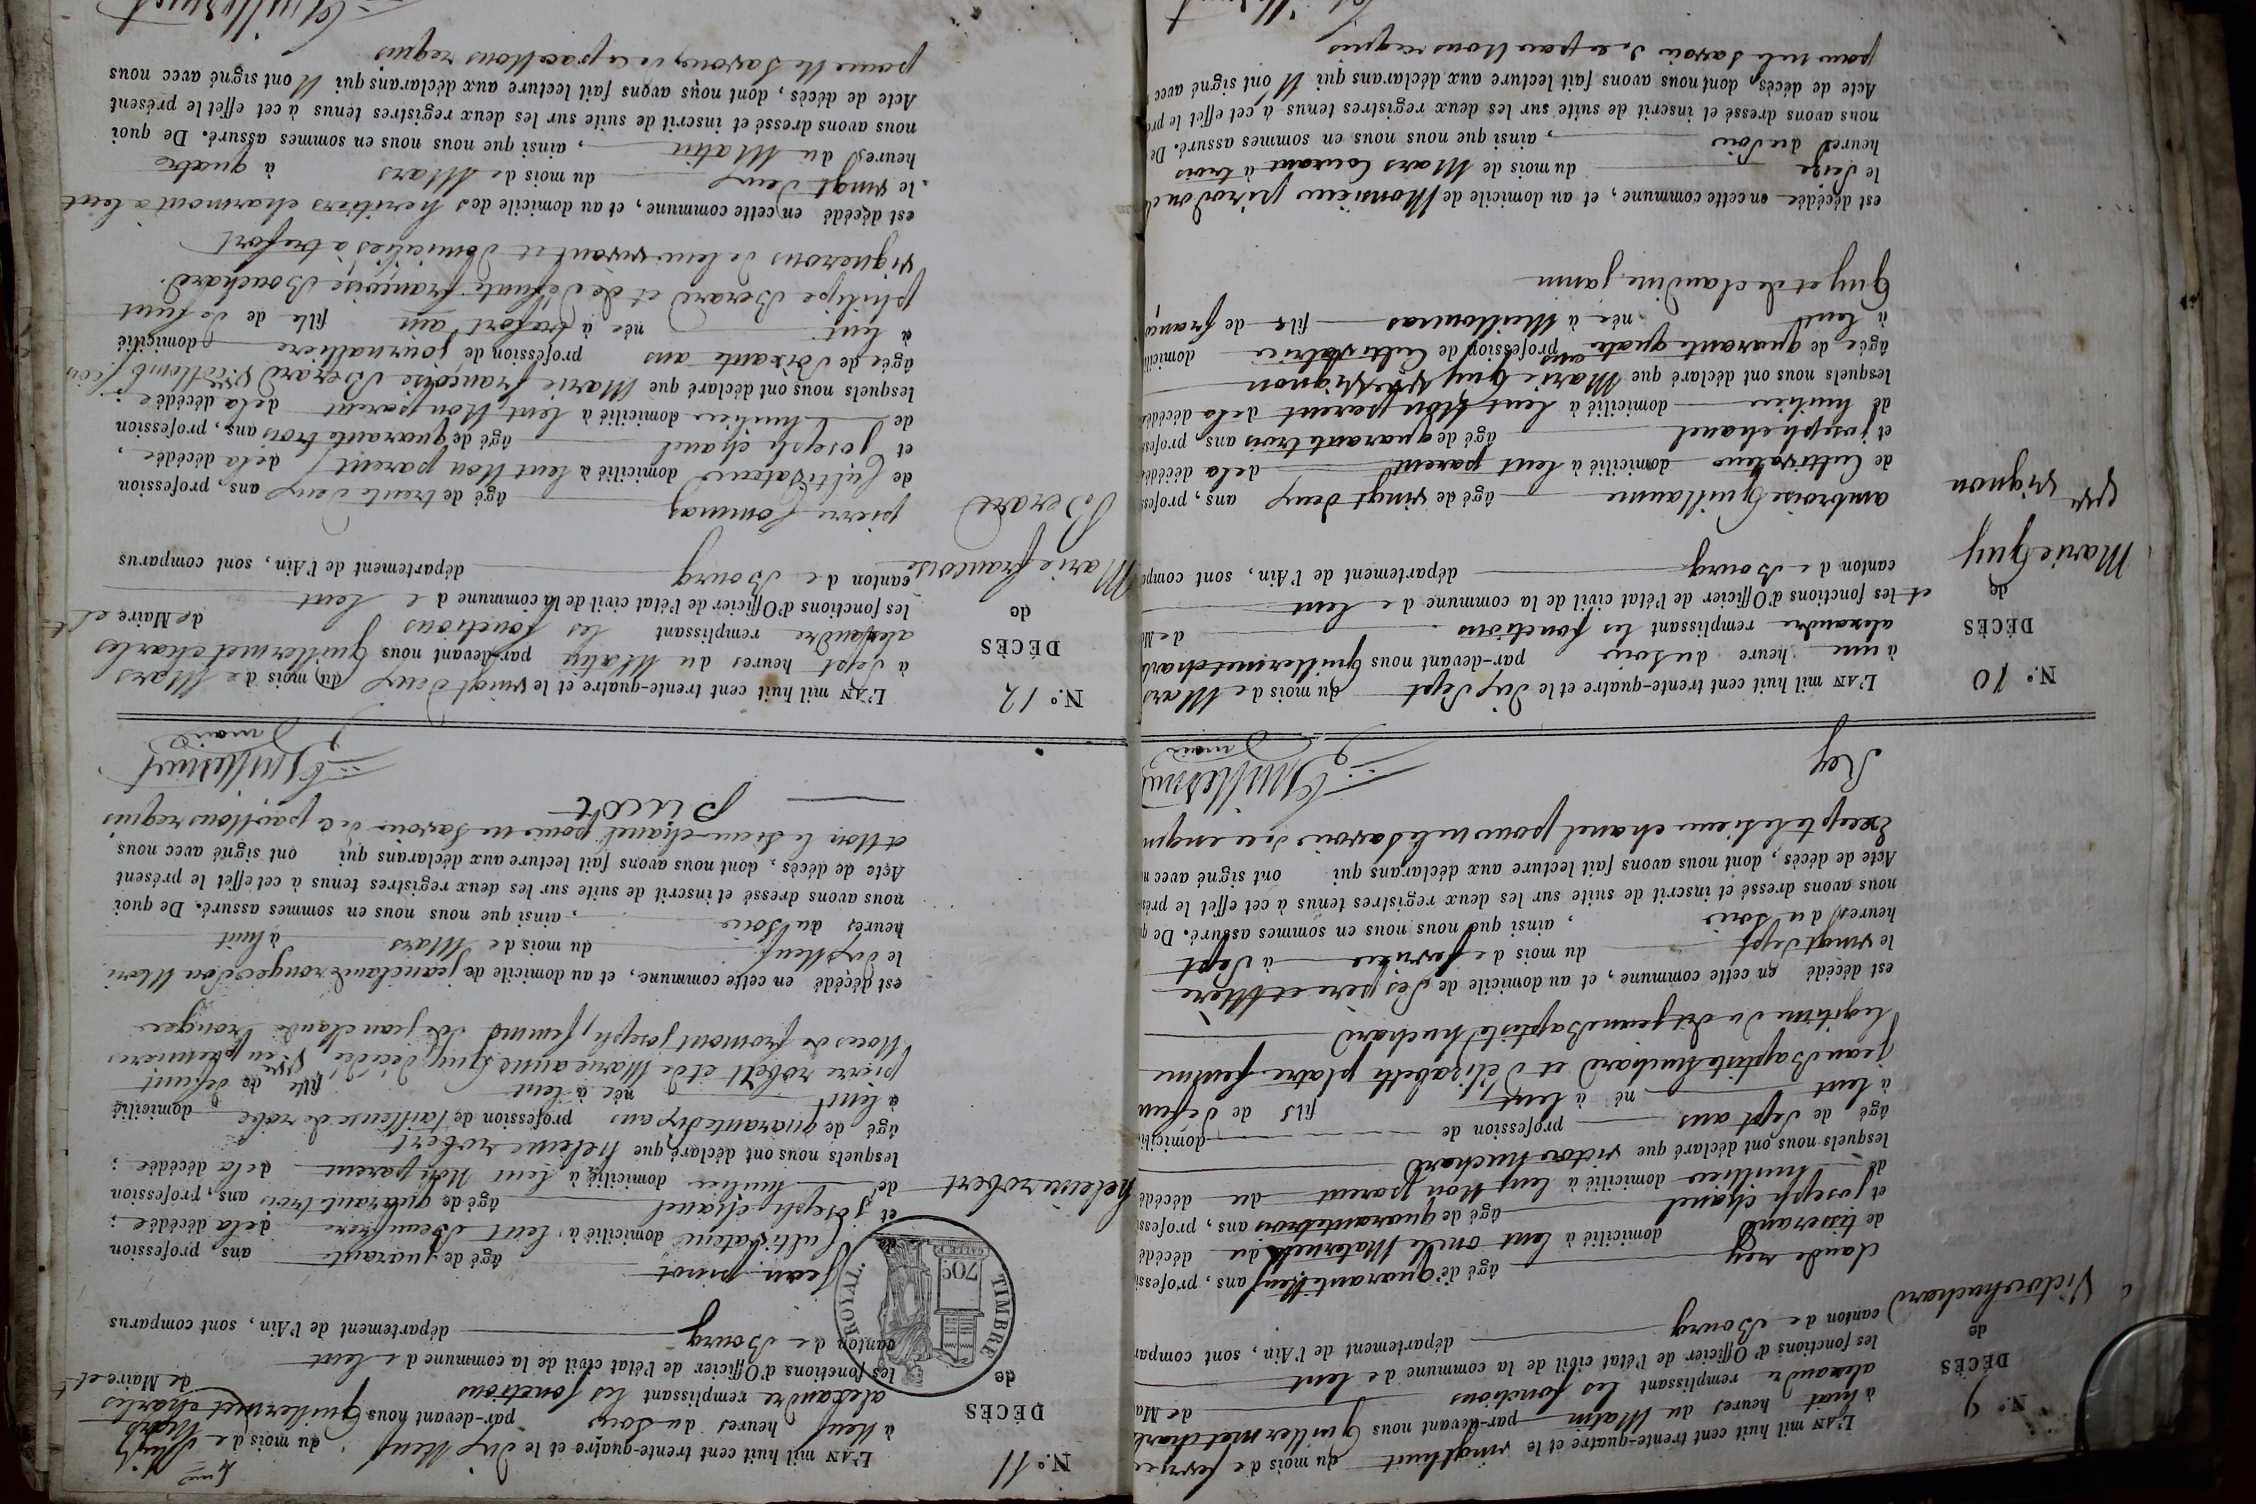 N.° 9
DÉCÈS
de
Victor huchard
L'AN mil huit cent trente-quatre et le vingt huit du mois de fevrie
à huit heures du Matin par-devant nous Guillermet charl
alexandre remplissant les fonctions de Ma
les fonctions d'Officier de l'état civil de la commune de lent
canton de Bourg département de l'Ain, sont compar
claude rey âgé de quarante neuf ans, profess
de tisserand domicilié à lent oncle Maternel du décédé
et joseph chanel âgé de quarante trois ans, profess
de huilier domicilié à lent Non parent du décédé
lesquels nous ont déclaré que victor huchard
âgé de Sept ans profession de domicilié
à lent né à lent fils de defun
jean Baptiste huchard et d'Elizabeth platre femme
legitime du dit jean Baptiste huchard
est décédé en cette commune, et au domicile de Ses père et Mère
le vingt Sept du mois de fevrier à Sept
heures du Soir , ainsi que nous nous en sommes assuré. De q
nous avons dressé et inscrit de suite sur les deux registres tenus à cet effet le prés
Acte de décès, dont nous avons fait lecture aux déclarans qui ont signé avec n
Excepté le sieur chanel pour ne le savoir de ce enquis
Rey
Guillermet
maire
N.° 10
DÉCÈS
de
Marie Guy
vve vignon
L'AN mil huit cent trente-quatre et le dix Sept du mois de Mars
à une heure du Soir par-devant nous Guillermet charl
alexandre remplissant les fonctions de M
et les fonctions d'Officier de l'état civil de la commune de lent
canton de Bourg département de l'Ain, sont comp
ambroise Guillaume âgé de vingt deux ans, profess
de Cultivateur domicilié à lent parent de la décédée
et joseph chanel âgé de quarante trois ans, profess
de huilier domicilié à lent Non parent de la décédée
lesquels nous ont déclaré que Marie Guy vve vignon
âgée de quarante quatre ans profession de Cultivatrice domicilié
à lent née à Meillonnas fille de franç
Guy et de claudine janin
est décédée en cette commune, et au domicile de Monsieur
le Seize du mois de Mars Courant à trois
heures du Soir , ainsi que nous nous en sommes assuré. De
nous avons dressé et inscrit de suite sur les deux registres tenus à cet effet le pré
Acte de décès, dont nous avons fait lecture aux déclarans qui N ont signé avec
pour ne le savoir de ce par Nous requis
N.° 11
DÉCÈS
de
helene robert
TIMBRE ROYAL
70c
L'AN mil huit cent trente-quatre et le dix Neuf du mois de Mars
à Neuf heures du Soir par-devant nous Guillermet charles
alexandre remplissant les fonctions de Maire et
les fonctions d'Officier de l'état civil de la commune de lent
canton de Bourg département de l'Ain, sont comparus
jean pinot âgé de quarante ans, profession
Cultivateur domicilié à lent Beau frere de la décédée ;
et joseph chanel âgé de quarante trois ans, profession
de huilier domicilié à lent Non parent de la décédée ;
lesquels nous ont déclaré que helene robert
âgé de quarante dix ans profession de tailleuse de robe domicilié
à lent née à lent fille de defunt
pierre robert et de Marie anne Guy décédée, vve en premieres
Noces de fromont joseph, femme de jean claude ronger
est décédé en cette commune, et au domicile de jean claude ronger Son Mari
le dix Neuf du mois de Mars à huit
heures du Soir , ainsi que nous nous en sommes assuré. De quoi
nous avons dressé et inscrit de suite sur les deux registres tenus à cet effet le présent
Acte de décès, dont nous avons fait lecture aux déclarans qui ont signé avec nous
et Non le Sieur chanel pour ne Savoir de ce par Nous requis
Guillermet
maire
N.° 12
DÉCÈS
de
Marie francoise
Berard
L'AN mil huit cent trente-quatre et le vingt deux du mois de Mars
à Sept heures du Matin par-devant nous Guillermet charles
alexandre remplissant les fonctions de Maire et
les fonctions d'Officier de l'état civil de la commune de lent
canton de Bourg département de l'Ain, sont comparus
pierre âgé de trente deux ans, profession
de Cultivateur domicilié à lent Non parent de la décédée ;
et Joseph chanel âgé de quarante trois ans, profession
de huilier domicilié à lent Non parent de la décédée ;
lesquels nous ont déclaré que Marie françoise Berard
âgée de Soixante ans profession de journalliere domicilié
à lent née à trefort ain fille de defunt
philipe Berard et de defunte françoise Bouchard.
vignerons de leur vivant et domiciliés à trefort
est décédé en cette commune, et au domicile des heritiers charmont à lent
le vingt deux du mois de Mars à quatre
heures du Matin , ainsi que nous nous en sommes assuré. De quoi
nous avons dressé et inscrit de suite sur les deux registres tenus à cet effet le présent
Acte de décès, dont nous avons fait lecture aux déclarans qui N ont signé avec nous
pour ne Savoir de ce par Nous requis
Guillermet